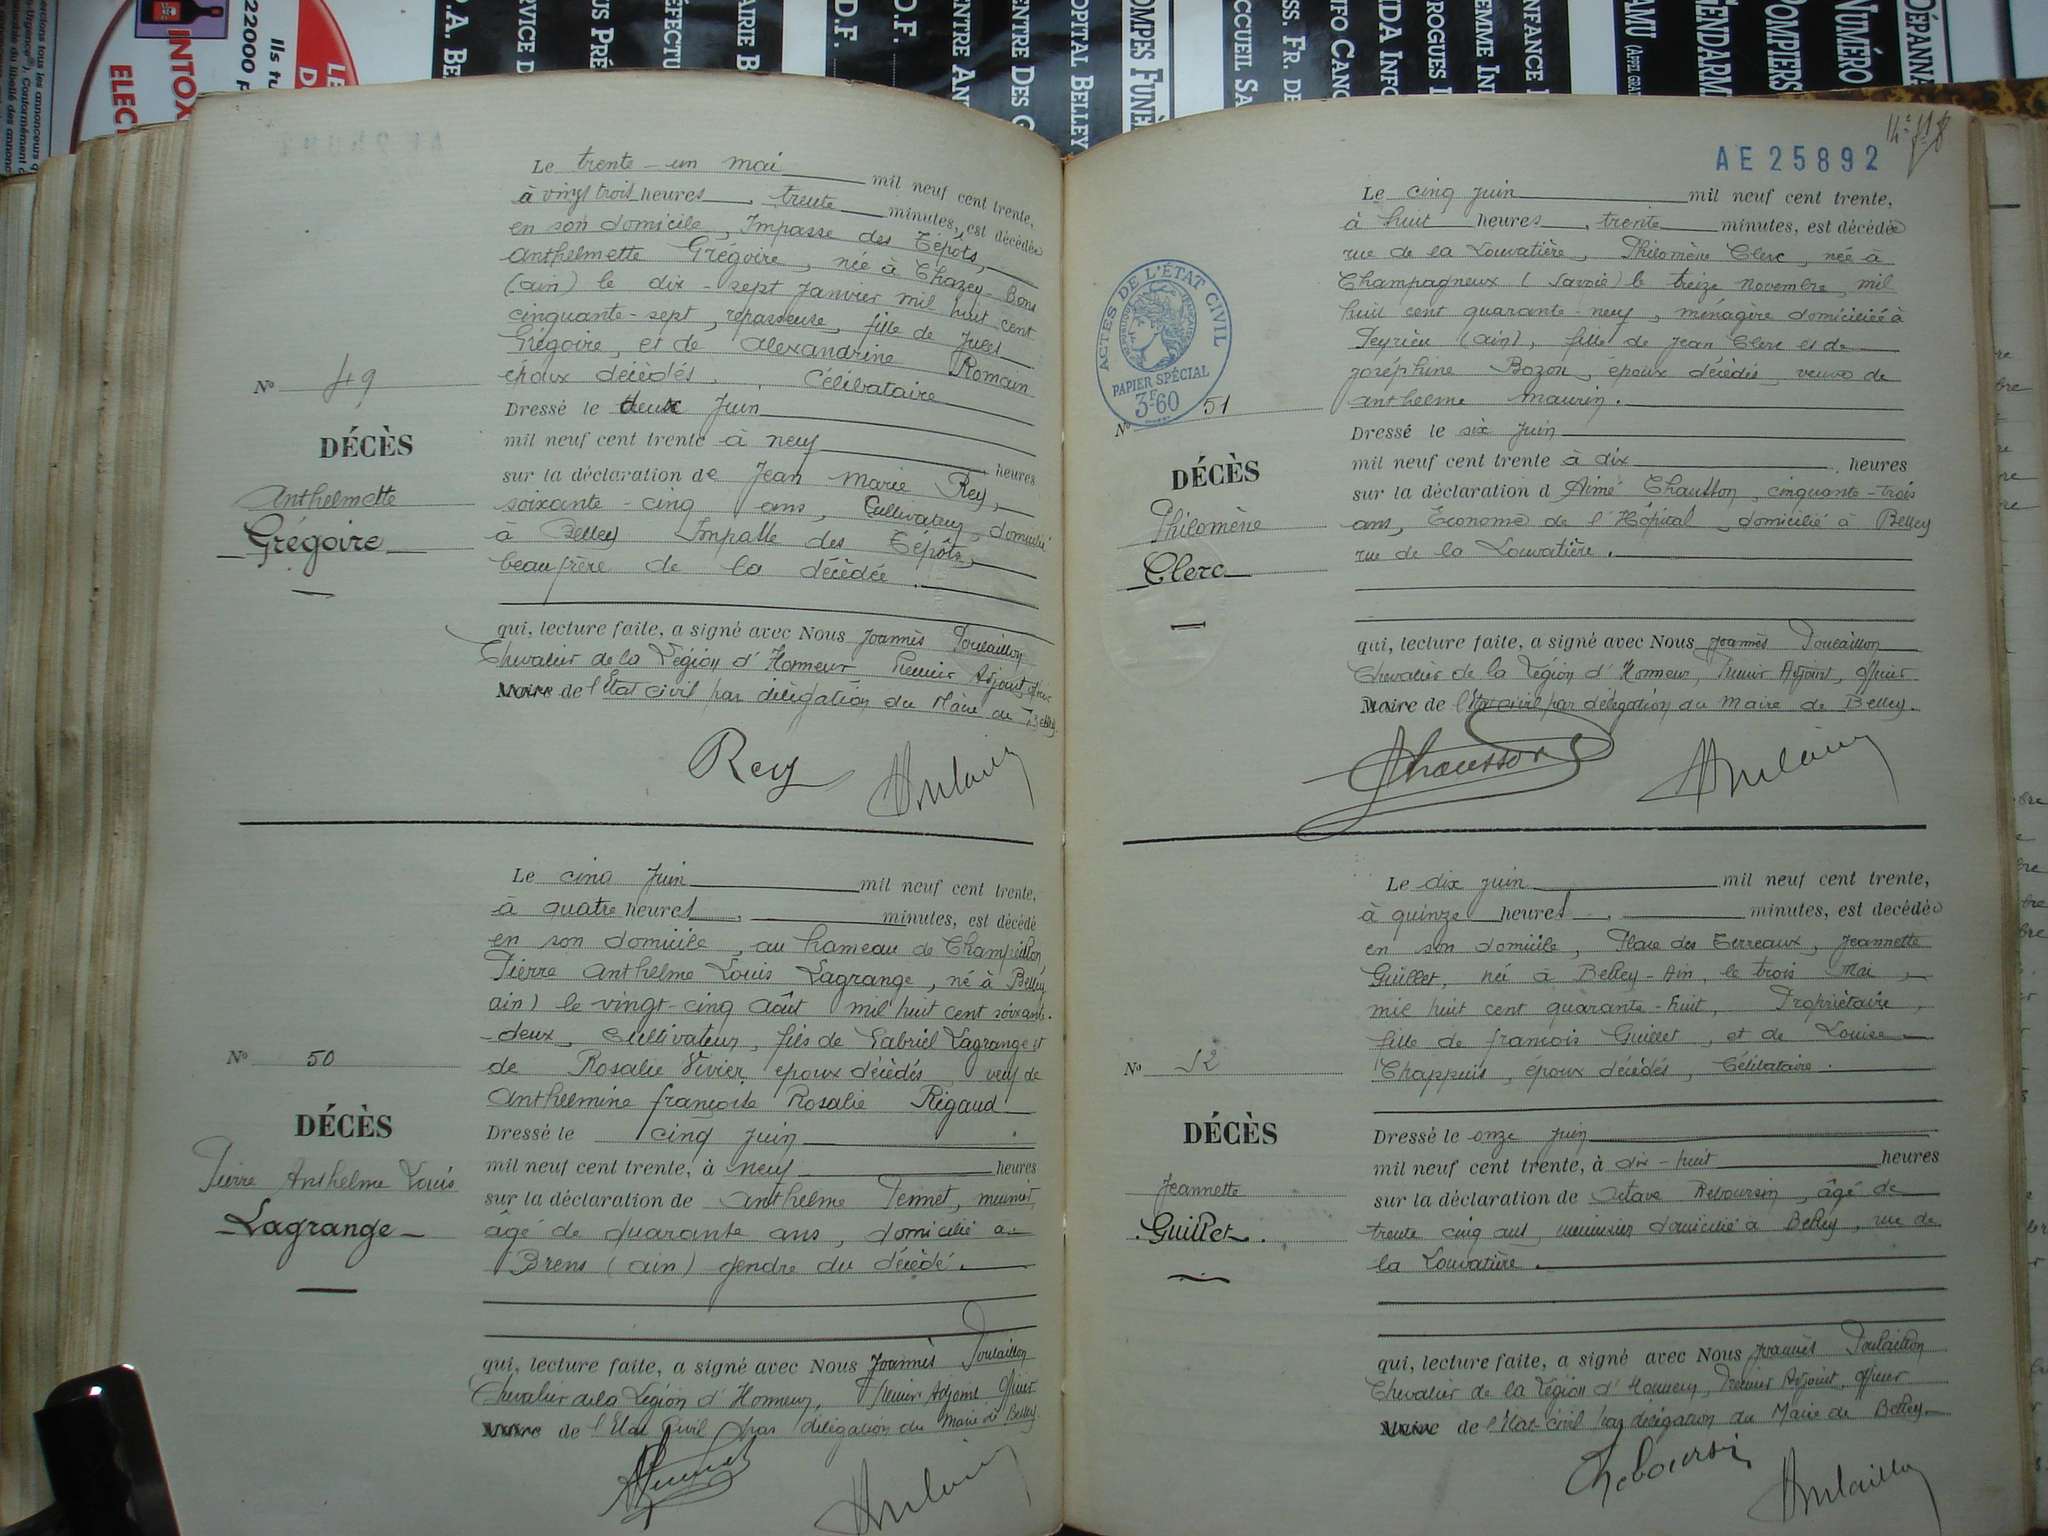 INTOX
ELEC
22000 F
Ils tu
LE
D
.A. BE
RVICE D
US PRÉ
ÉFECTU
AIRIE B
.D.F.
.D.F.
ENTRE AN
ENTRE DES C
ÔPITAL BELLEY
OMPES FUNÈ
CCUEIL SA
SS. FR. DE
NFO CANC
IDA INFO
ROGUES I
EMME INF
NFANCE
AMU (APPEL GRA
GENDARM
POMPIERS
NUMÉRO
DÉPANNA
Le trente-un mai mil neuf cent trente,
à vingt trois heures, trente minutes, est décédée
en son domicile, Impasse des Dépôts,
Anthelmette Grégoire, née à Chazey-Bons
(ain) le dix-sept janvier mil huit cent
cinquante-sept, repasseuse, fille de Jules
Grégoire, et de Alexandrine Romain
époux décédés, Célibataire
Nº 49
DÉCÈS
Anthelmette
Grégoire
Dressé le deux Juin
mil neuf cent trente à neuf heures
sur la déclaration de Jean Marie Rey,
soixante-cinq ans, Cultivateur, domicilié
à Belley Impasse des Dépôts,
beaufrère de la décédée.
qui, lecture faite, a signé avec Nous Joannès Poulaillon
Chevalier de la Légion d'Honneur Premier Adjoint, officier
Maire de l'Etat civil par délégation du Maire de Belley.
Rey
Le cinq Juin mil neuf cent trente,
à quatre heures, minutes, est décédé
en son domicile, au hameau de
Pierre Anthelme Louis Lagrange, né à Belley
ain) le vingt-cinq Août mil huit cent soixante-
-deux, Cultivateur, fils de Gabriel Lagrange et
de Rosalie Vivier, époux décédés, veuf de
Anthelmine françoise Rosalie Rigaud
Nº 50
DÉCÈS
Pierre Anthelme Louis
Lagrange
Dressé le cinq juin
mil neuf cent trente, à neuf heures
sur la déclaration de Anthelme Pennet,
âgé de quarante ans, domicilié à
Brens (ain) gendre du décédé.
qui, lecture faite, a signé avec Nous Joannès Poulaillon
Chevalier de la Légion d'Honneur, Premier Adjoint Officier
Maire de l'Etat Civil par délégation du Maire de Belley
AE 25892
ACTES DE L'ÉTAT CIVIL
PAPIER SPÉCIAL
3F60
Le cinq juin mil neuf cent trente,
à huit heures, trente minutes, est décédée
rue de la Louvatière, Philomène Clerc, née à
Champagneux (Savoie) le treize novembre, mil
huit cent quarante-neuf, ménagère domiciliée à
Peyrieu (ain), fille de Jean Clerc et de
joséphine Bozon, époux décédés, veuve de
anthelme maurin.
Nº 51
DÉCÈS
Philomène
Clerc
Dressé le six juin
mil neuf cent trente à dix heures
sur la déclaration d Aimé Chausson, cinquante-trois
ans, Econome de l'Hôpital, domicilié à Belley
rue de la Louvatière.
qui, lecture faite, a signé avec Nous Joannès Poulaillon
Chevalier de la Légion d'Honneur, Premier Adjoint, officier
Maire de l'Etat civil par délégation du Maire de Belley.
Chausson
Le dix juin mil neuf cent trente,
à quinze heures, minutes, est décédée
en son domicile, Place des Terreaux, Jeannette
Guillet, née à Belley-Ain, le trois Mai,
mil huit cent quarante-huit, Propriétaire,
fille de françois Guillet, et de Louise
Chappuis, époux décédés, Célibataire.
Nº 52
DÉCÈS
Jeannette
Guillet.
Dressé le onze juin
mil neuf cent trente, à dix-huit heures
sur la déclaration de Octave Reboursin, âgé de
trente cinq ans, menuisier domicilié à Belley, rue de
la Louvatière.
qui, lecture faite, a signé avec Nous Joannès Poulaillon
Chevalier de la Légion d'Honneur, Premier Adjoint, officier
Maire de l'Etat civil par délégation du Maire de Belley.
Reboursin
Poulaillon